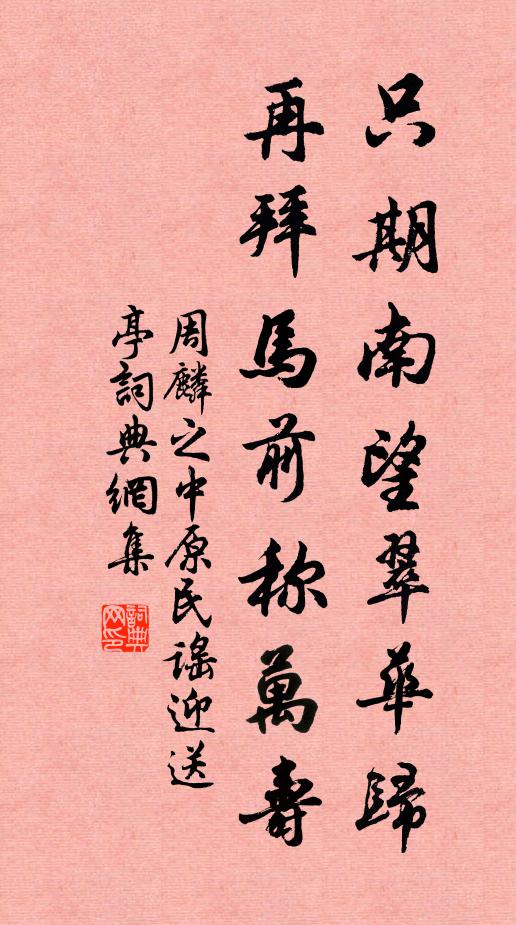 只期南望翠華歸
再拜馬前称萬壽
周麟之中原民謠迎送
亭詞典網集
詞典网印